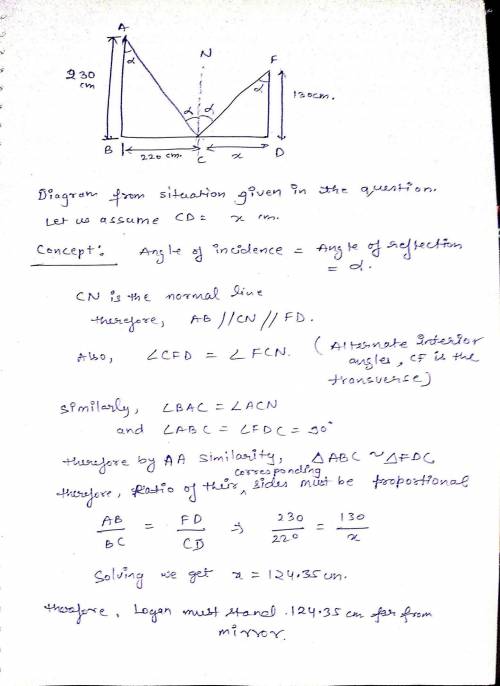 A
N
F
230
cm
α
α
α
α
130cm.
B
220 cm.
C
x
D
Diagram from situation given in the question.
Let us assume CD = x cm.
Concept: Angle of incidence = Angle of reflection
= α.
CN is the normal line
therefore, AB // CN // FD.
Also, ∠CFD = ∠FCN. (Alternate interior
angles, CF is the
transverse)
Similarly, ∠BAC = ∠ACN
and ∠ABC = ∠FDC = 90°
therefore by AA similarity, △ABC ~ △FDC
corresponding
therefore, Ratio of their, sides must be proportional
AB/BC = FD/CD ⇒ 230/220 = 130/x
Solving we get x = 124.35 cm.
therefore, Logan must stand .124.35 cm far from
mirror.